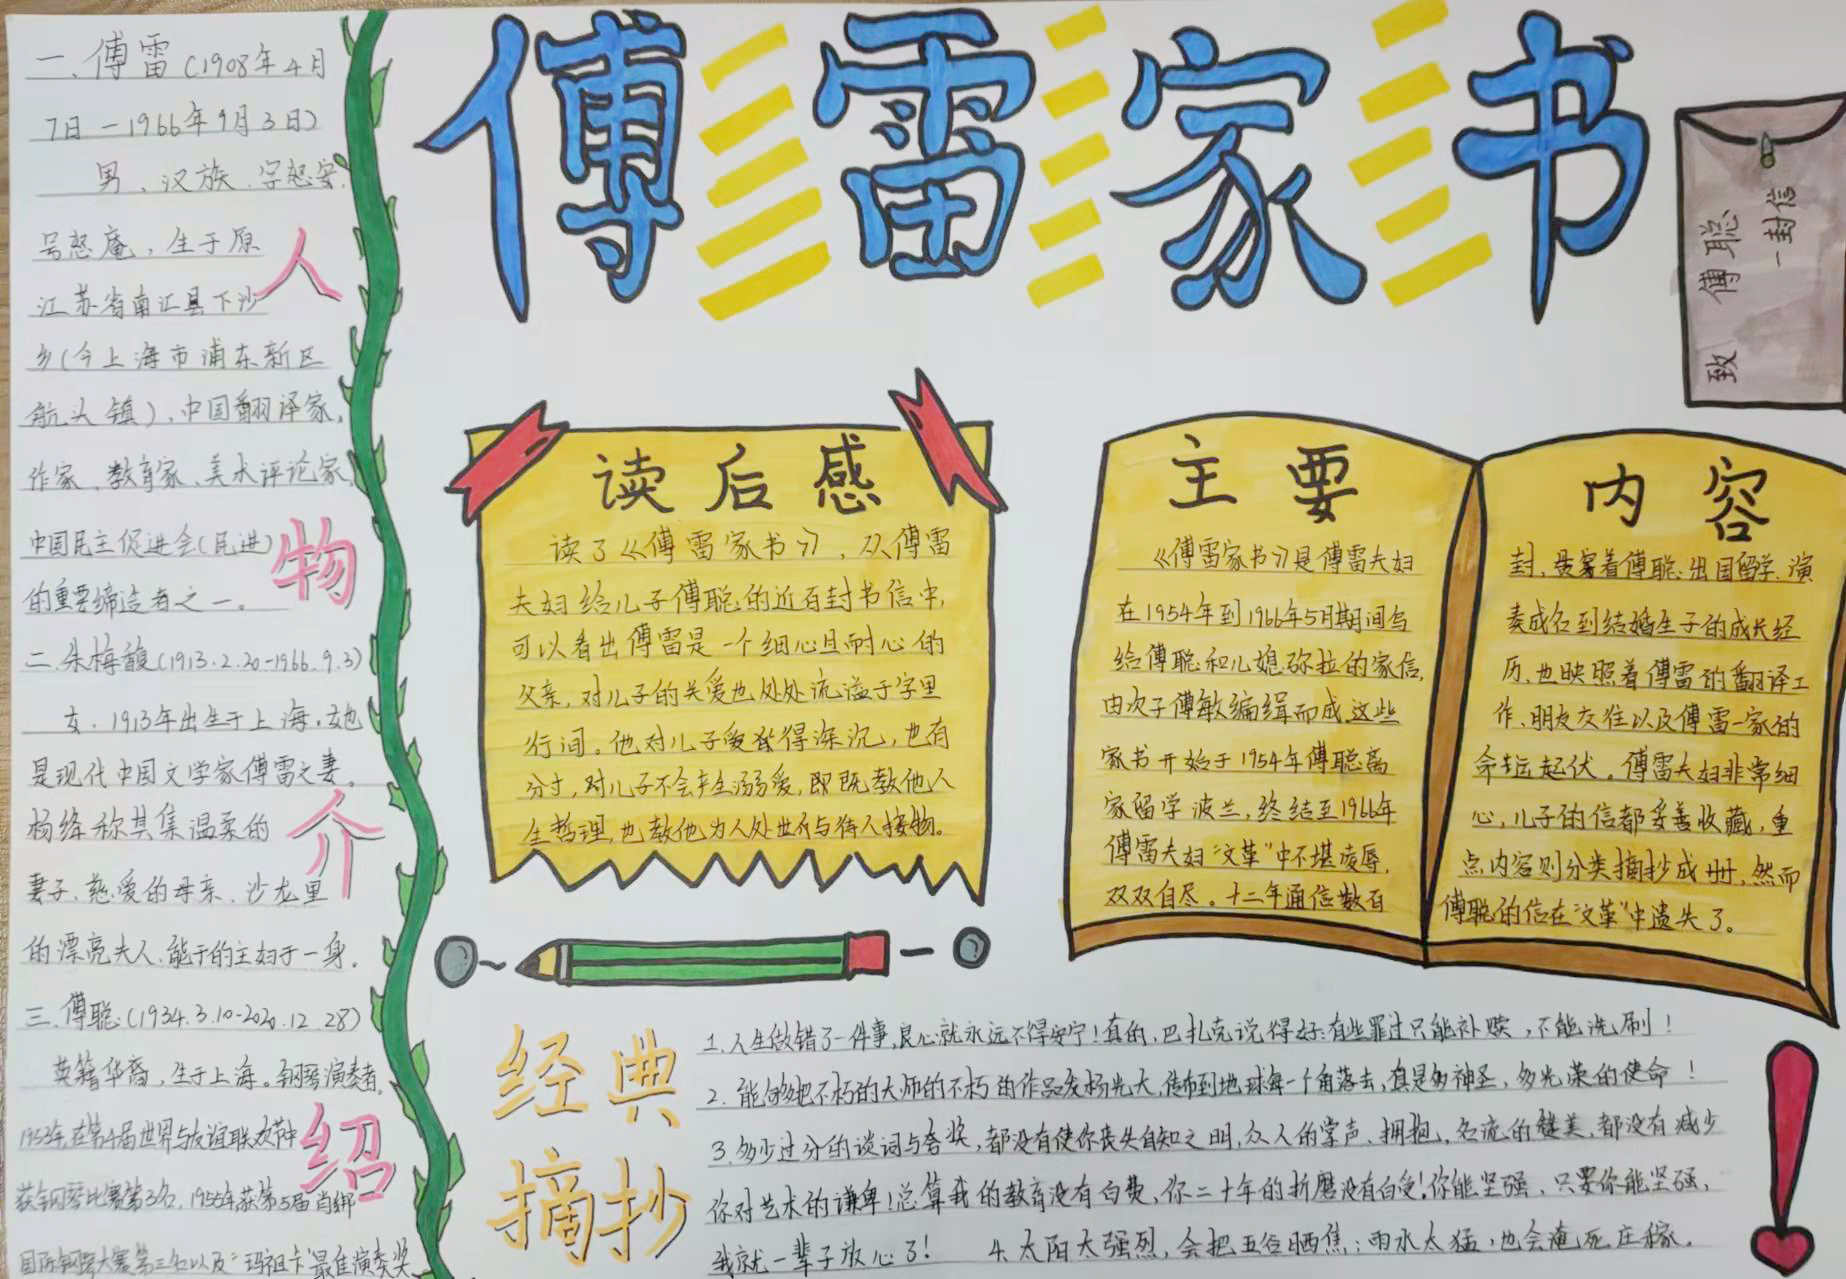 傅雷家书
致 傅聪
一封信
人物介绍
一、傅雷(1908年4月
7日—1966年9月3日)
男、汉族、字怒安,
号怒庵,生于原
江苏省南汇县下沙
乡(今上海市浦东新区
航头镇),中国翻译家,
作家、教育家、美术评论家,
中国民主促进会(民进)
的重要缔造者之一。
二、朱梅馥(1913.2.20-1966.9.3)
女.1913年出生于上海.她
是现代中国文学家傅雷之妻。
杨绛称其集温柔的
妻子、慈爱的母亲、沙龙里
的漂亮夫人、能干的主妇于一身。
三、傅聪(1934.3.10-2020.12.28)
英籍华裔,生于上海。钢琴演奏者.
1953年,在第4届世界与友谊联欢节中
获钢琴比赛第3名,1955年获第5届肖邦
国际钢琴大赛第三名以及“玛祖卡”最佳演奏奖
读后感
读了《傅雷家书》,从傅雷
夫妇给儿子傅聪的近百封书信中,
可以看出傅雷是一个细心且耐心的
父亲,对儿子的关爱也处处流溢于字里
行间。他对儿子爱得深沉,也有
分寸,对儿子不会产生溺爱,即既教他人
生哲理,也教他为人处世与待人接物。
主要内容
《傅雷家书》是傅雷夫妇
在1954年到1966年5月期间写
给傅聪和儿媳弥拉的家信,
由次子傅敏编缉而成.这些
家书开始于1954年傅聪离
家留学波兰,终结至1966年
傅雷夫妇“文革”中不堪凌辱,
双双自尽。十二年通信数百
封,贯穿着傅聪出国留学、演
奏成名到结婚生子的成长经
历,也映照着傅雷的翻译工
作、朋友交往以及傅雷一家的
命运起伏。傅雷夫妇非常细
心,儿子的信都妥善收藏,重
点内容则分类摘抄成册,然而
傅聪的信在“文革”中遗失了。
经典
摘抄
1.人生做错了一件事,良心就永远不得安宁!真的,巴扎克说得好:有些罪过只能补赎,不能洗刷!
2.能够把不朽的大师的不朽的作品发扬光大,传布到地球每一个角落去,真是多神圣,多光荣的使命!
3.多少过分的谀词与夸奖,都没有使你丧失自知之明,众人的掌声、拥抱,名流的赞美,都没有减少
你对艺术的谦卑!总算我的教育没有白费,你二十年的折磨没有白受!你能坚强,只要你能坚强,
我就一辈子放心了! 4.太阳太强烈,会把五谷晒焦;雨水太猛,也会淹死庄稼.